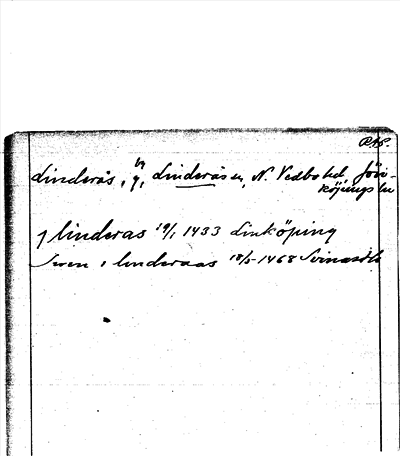 RAP.
Linderås, by g, Linderås sn, N. Vedbo hd, Jön-
köpings län
j linderas 19/1 1433 Linköping
Swen i linderaas 18/5 1468